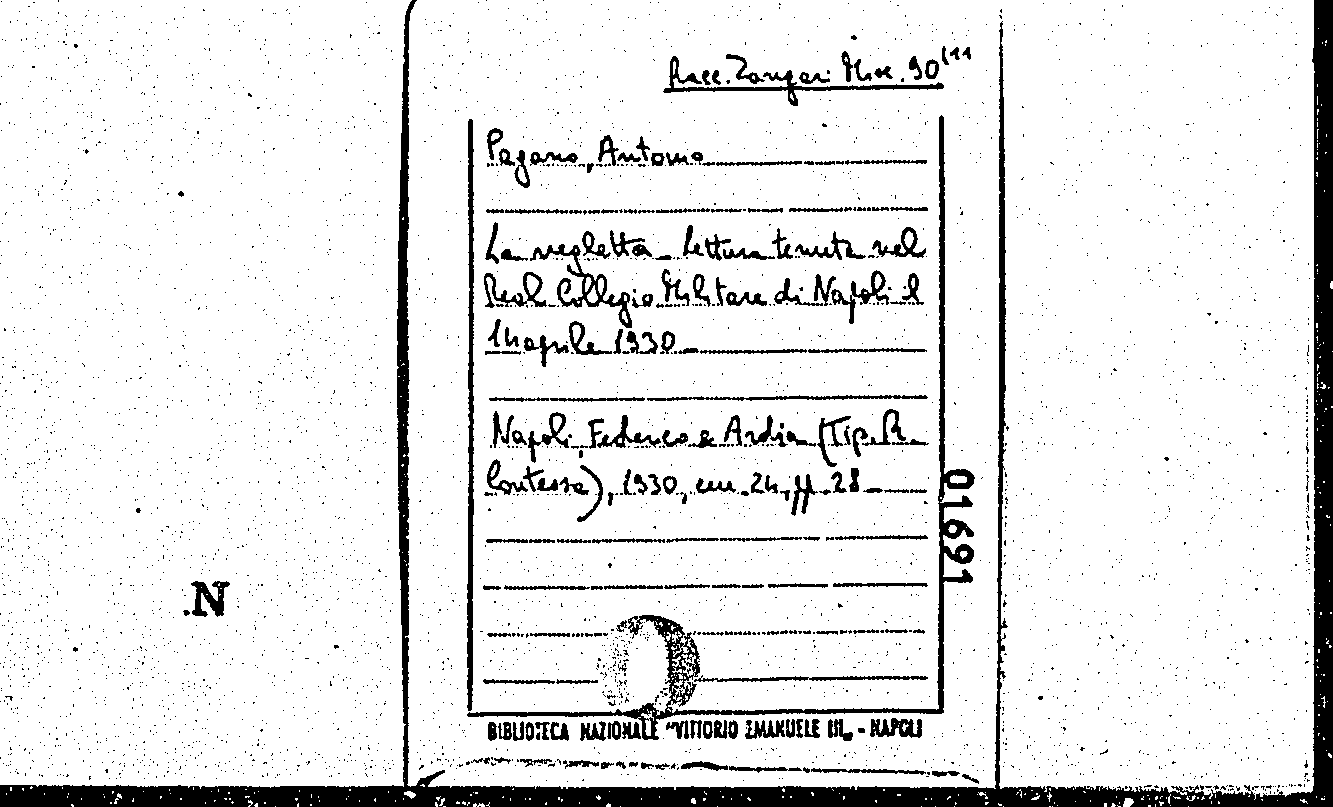 Racc. Zangari Misc. 90(11
Pagano, Antonio
La negletta. Lettura tenuta nel
Real Collegio Militare di Napoli il
14 aprile 1930
Napoli, Federico & Ardia (Tip. R.
Contessa), 1930, cm. 24, pp. 28
01691
.N
BIBLIOTECA NAZIONALE "VITTORIO EMANUELE III„ - NAPOLI